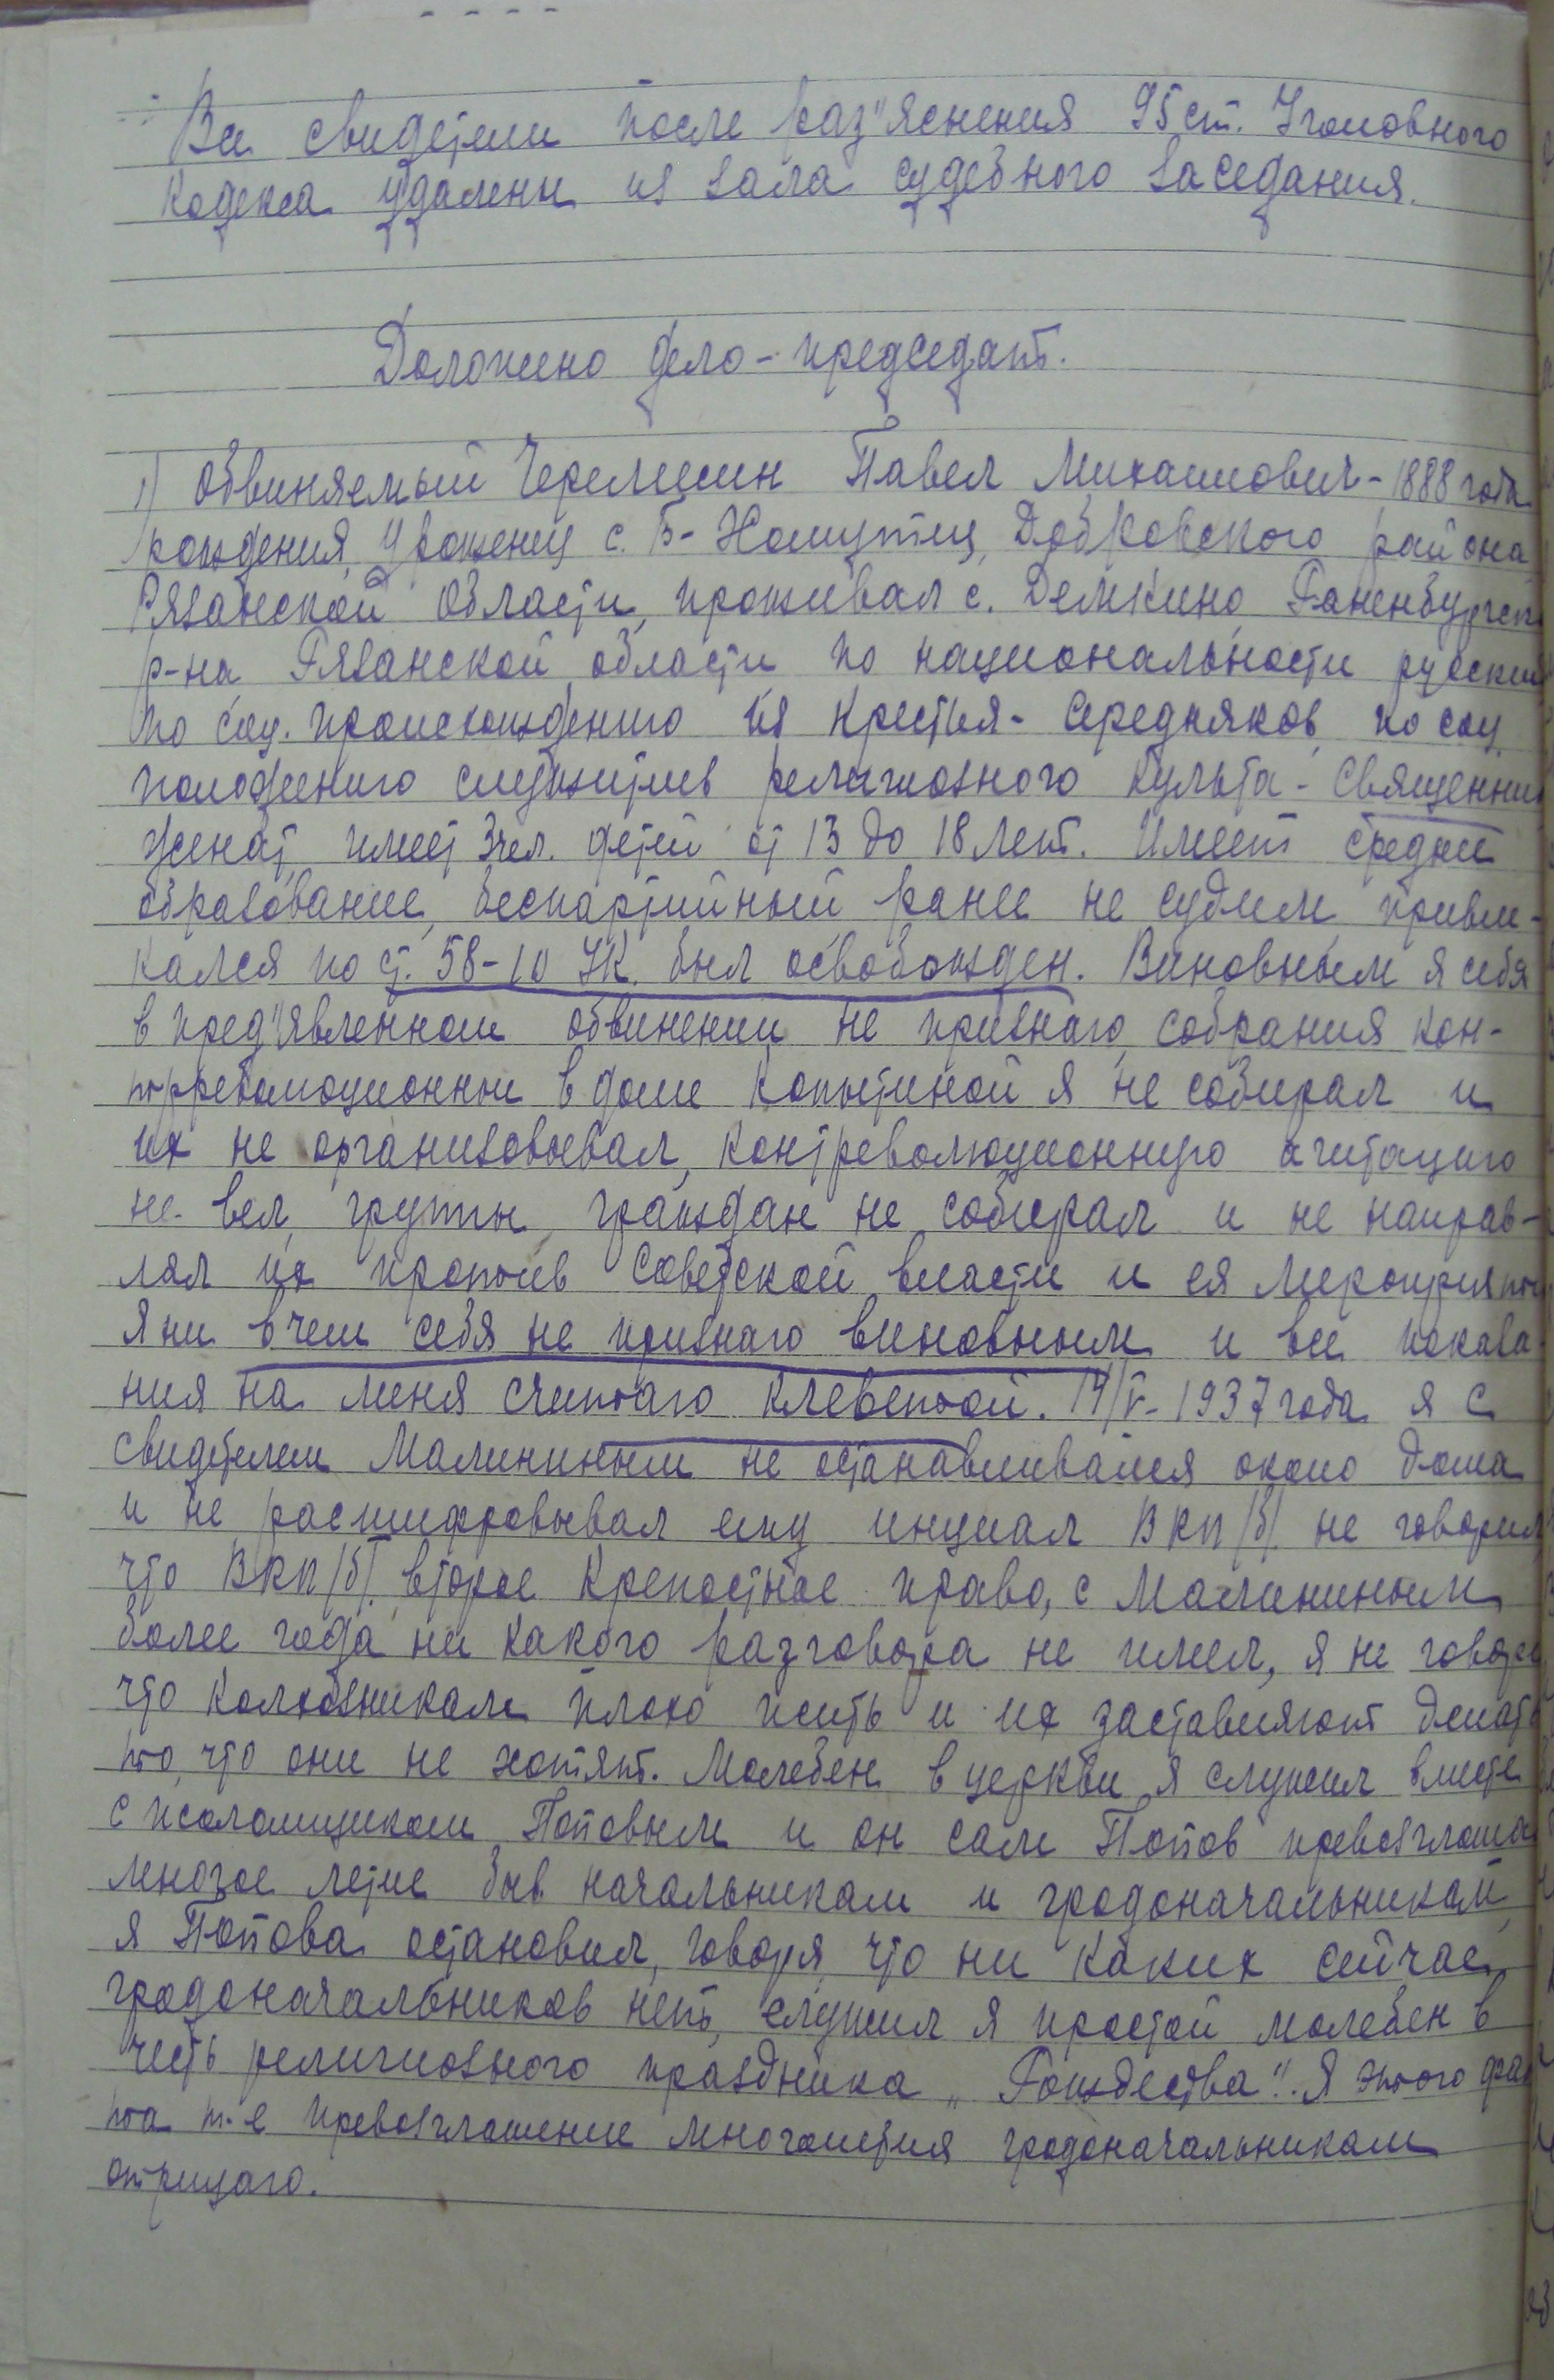 Все свидетели после раз"яснения 95 ст. Уголовного
кодекса удалены из зала судебного заседания.
Доложено дело - председат.
1) Обвиняемый Черемисин Павел Михайлович - 1888 года
рождения, уроженец с. Б-Хомутец, Добровского района
Рязанской области, проживал с. Демкино Раненбургск
р-на Рязанской области по национальности русский
по соц. происхождению из крестья-середняков, по соц.
положению служитель религиозного культа - священник
женат, имеет 3 чел. детей от 13 до 18 лет. Имеет средни
образование, беспартийный ранее не судим привле-
кался по ст. 58-10 УК. был освобожден. Виновным я себя
в пред"явленном обвинении не признаю, собрания кон-
трреволюционные в доме Копытиной я не собирал и
их не организовывал, контрреволюционную агитацию
не вел, группы граждан не собирал и не направ-
лял их против советской власти и ея мероприяти
Я ни в чем себя не признаю виновным и все показа
ния на меня считаю клеветой. 14/V-1937 года я с
свидетелем Малининым не останавливался около дома
и не расшифровывал ему инциал ВКП/б/. не говорил
что ВКП/б/. второе крепостное право, с Малининым
более года ни какого разговора не имел, я не говори
что колхозникам плохо жить и их заставляют делать
то, что они не хотят. Молебен в церкви я служил вместе
с псаломщиком Поповым и он сам Попов превозглаша
многое летие быв. начальникам и градоначальникам,
я Попова остановил, говоря, что ни каких сейчас
градоначальников нет, служил я простой молебен в
честь религиозного праздника „Рождества". Я этого фак
та т-е превозглашение многолетия градоначальникам
отрицаю.